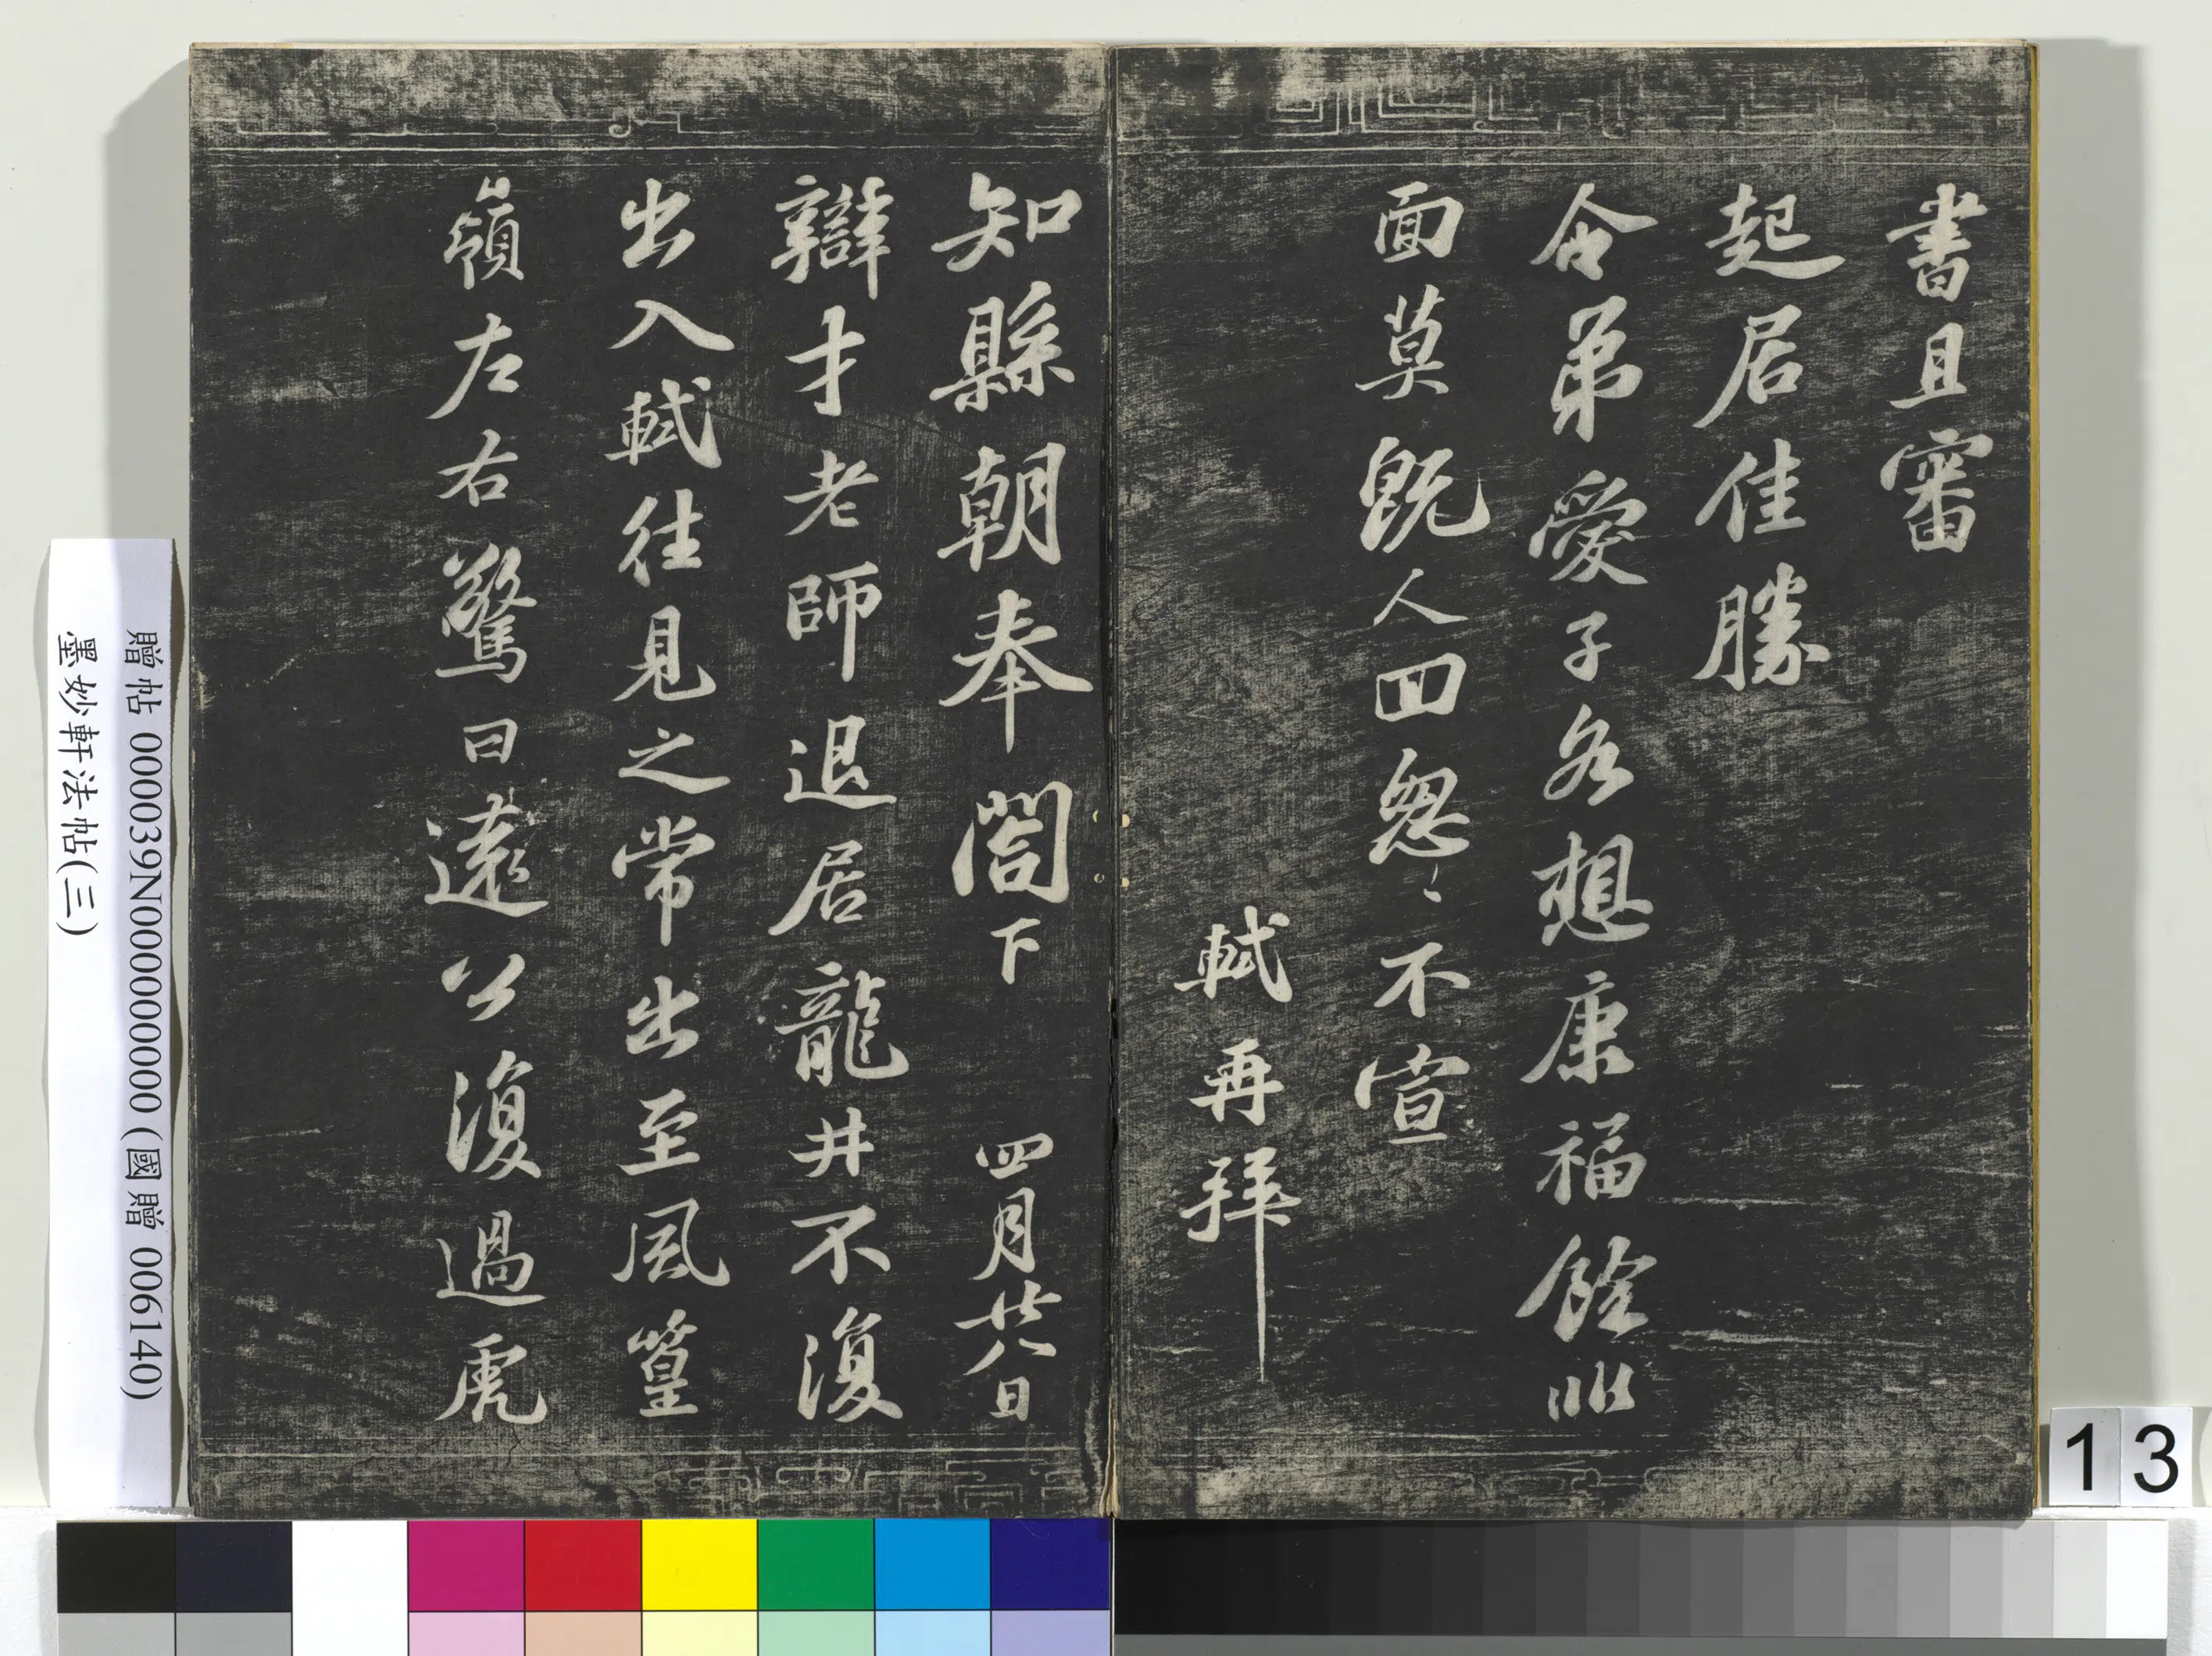 書且審
起居佳勝
令弟愛子各想康福餘非
面莫既人回怱〻不宣
軾再拜
知縣朝奉閤下 四月廿八日
辯才老師退居龍井不復
出入軾往見之常出至風篁
嶺左右驚曰遠公復過虎
贈帖 000039N000000000 (國贈 006140)
墨妙軒法帖(三)
13